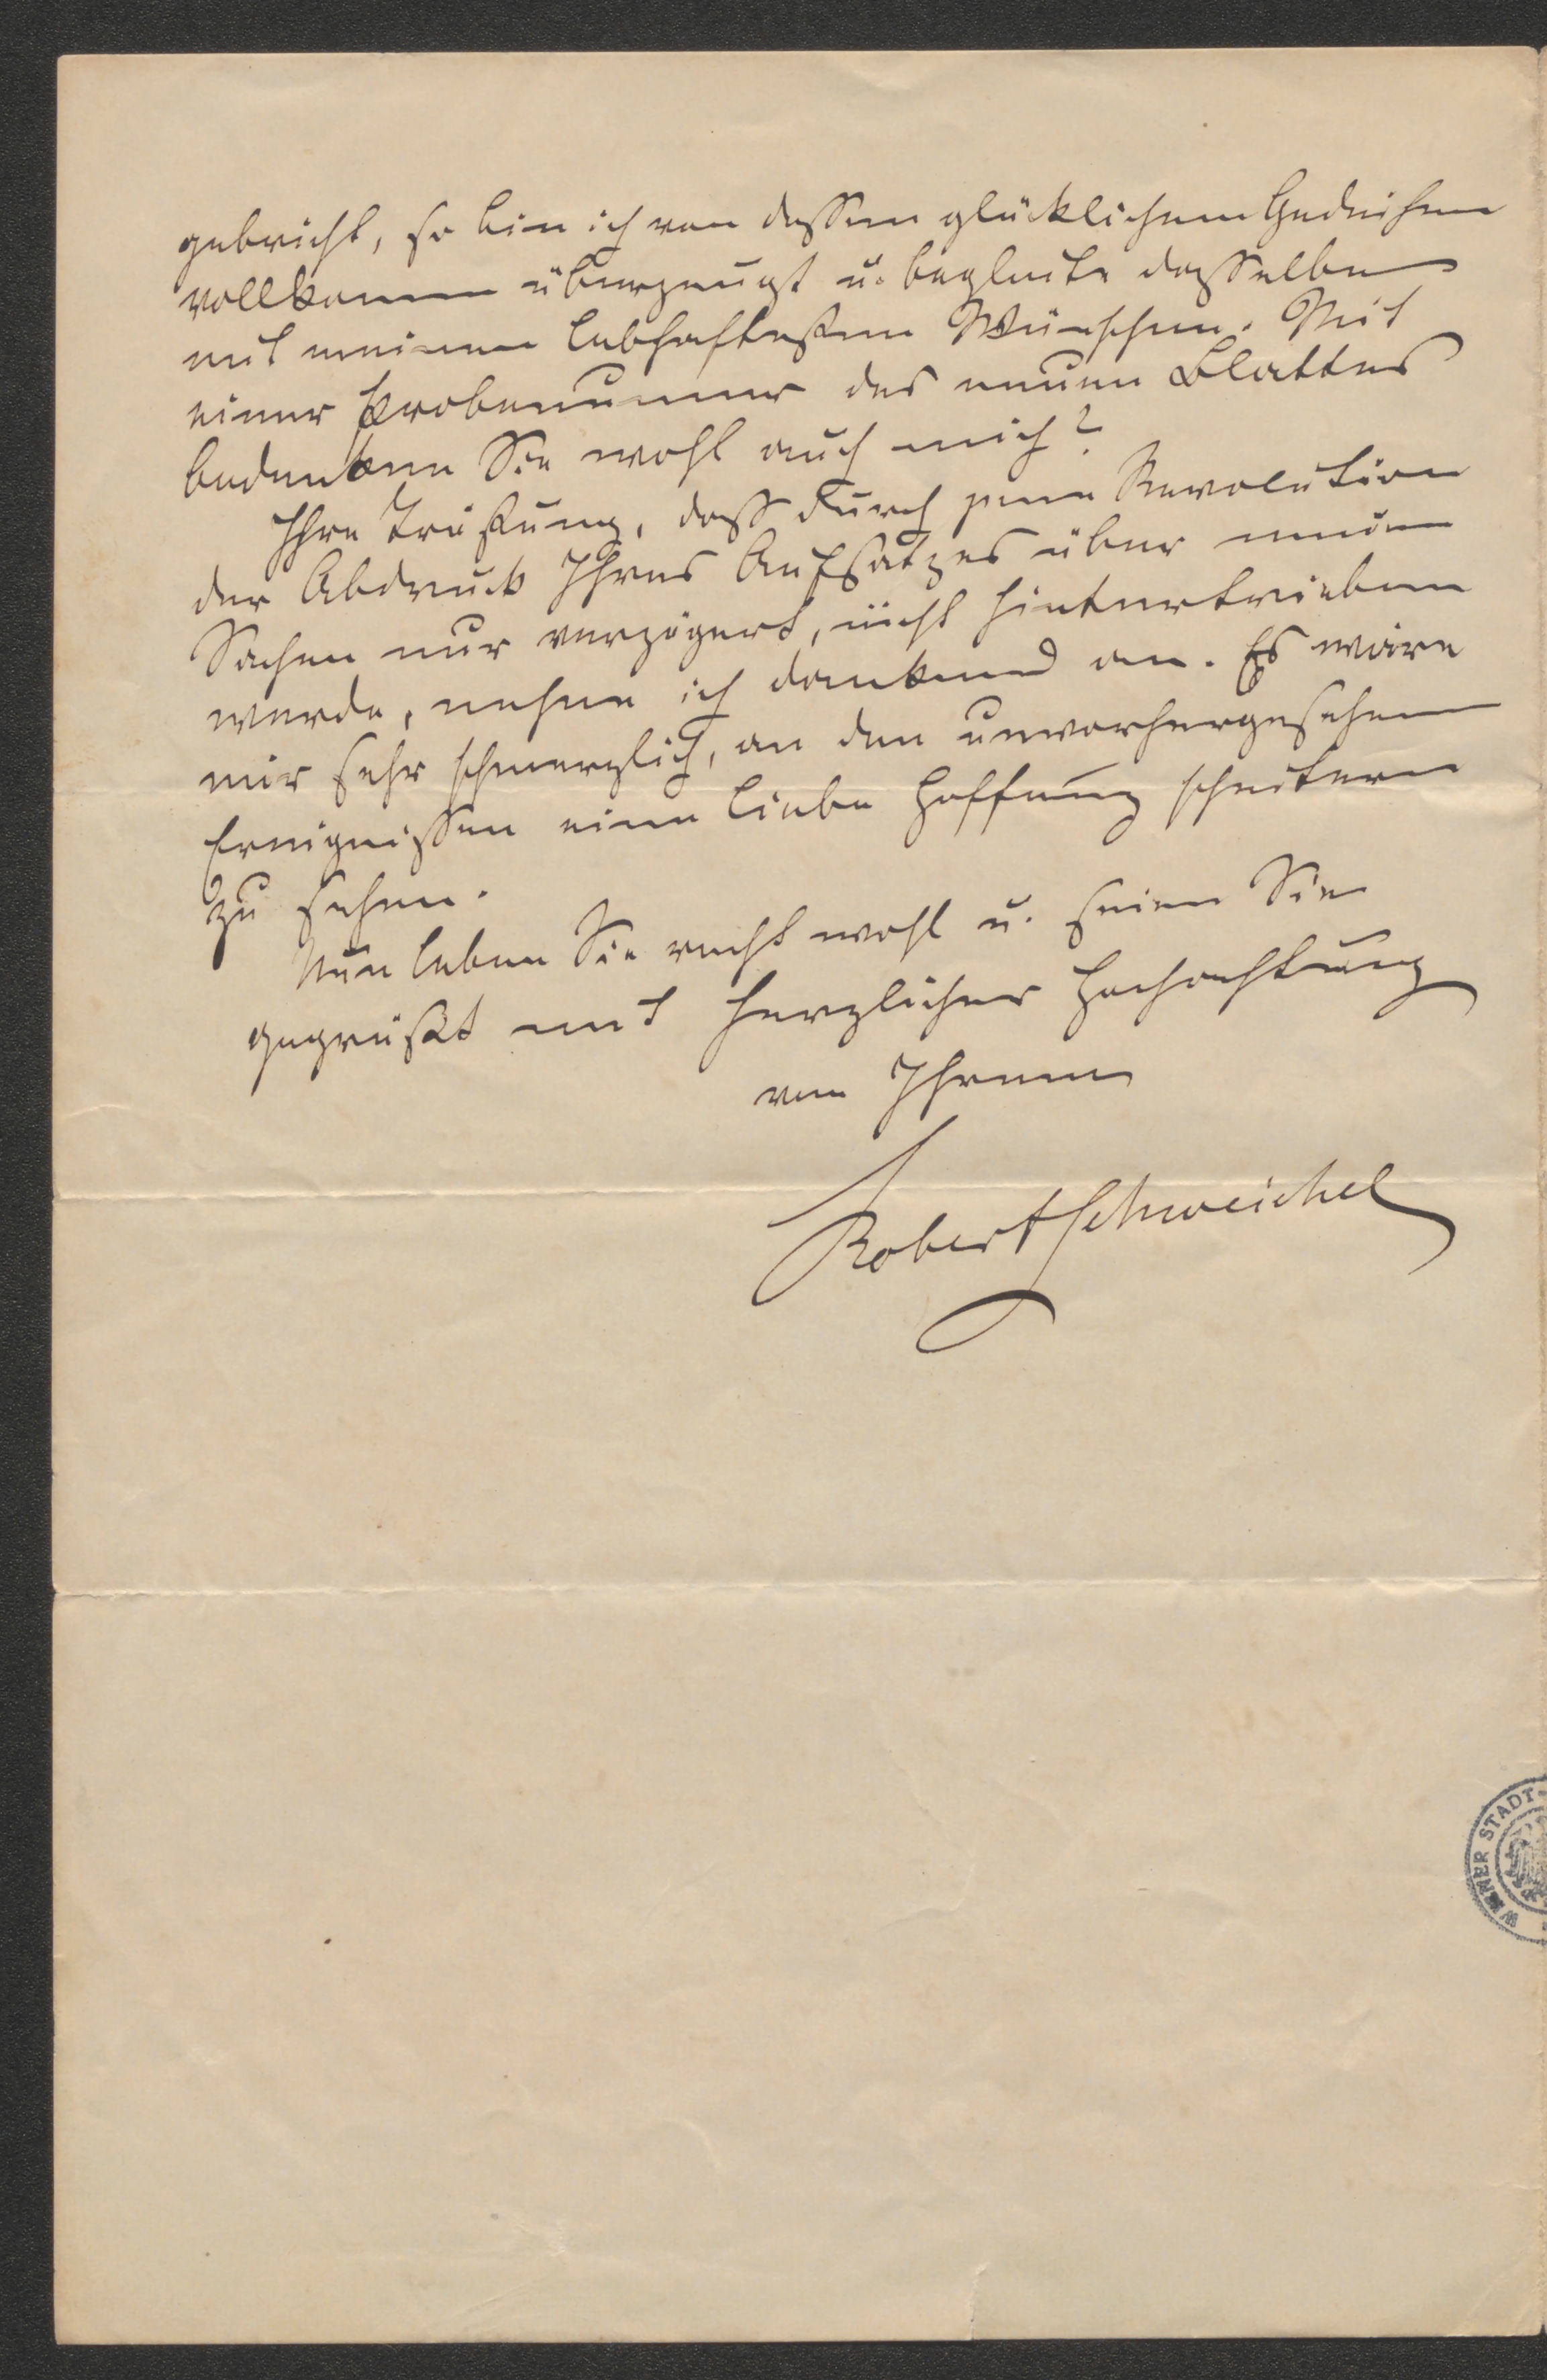 gebricht, so bin ich von dessen glücklichem Gedeihen
vollkommen überzeugt u. begleite dasselbe
mit meinen lebhaftesten Wünschen. Mit
einer Probenummer des neuen Blattes
bedenken Sie wohl auch mich?
Ihre Tröstung, dass durch jene Revolution
der Abdruck Ihres Aufsatzes über meine
Sachen nur verzögert, nicht hintertrieben
werde, nehme ich dankend an. Es wäre
mir sehr schmerzlich, an den unvorhergesehenen
Ereignissen eine liebe Hoffnung scheitern
zu sehen.
Nun leben Sie recht wohl u. seien Sie
gegrüßt mit herzlicher Hochachtung
von Ihrem
Robert Schweichel
WIENER STADT-